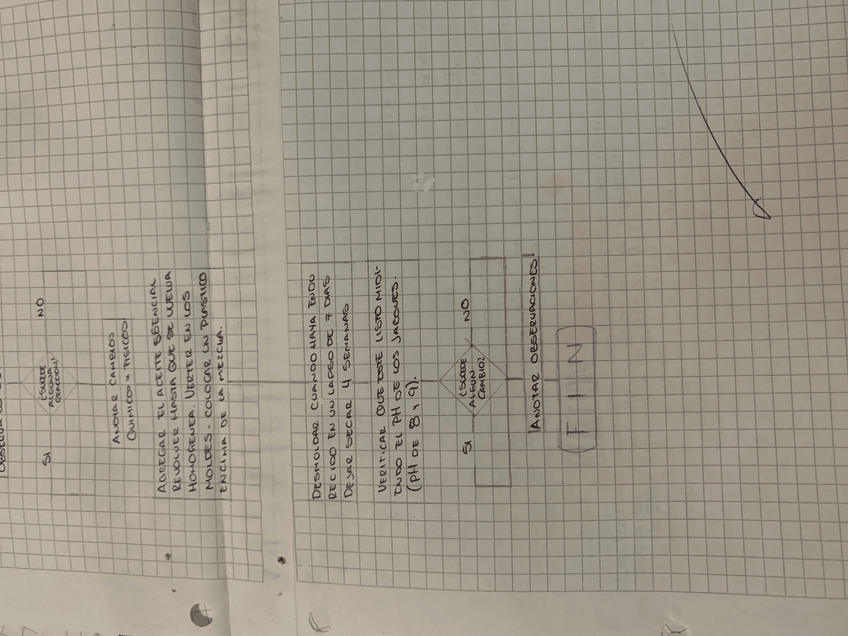 OBSERVA
¿SUCEDE
ALGUNA
REACCION?
SI
NO
ANOTAR CAMBIOS
QUIMICOS Y FISICOS
AGREGAR EL ACEITE ESENCIAL
REVOLVER HASTA QUE SE VUELVA
HOMOGENEA. VERTER EN LOS
MOLDES. COLOCAR UN PLASTICO
ENCIMA DE LA MEZCLA.
DESMOLDAR CUANDO HAYA ENDU
RECIDO EN UN LAPSO DE 7 DIAS
DEJAR SECAR 4 SEMANAS
VERIFICAR QUE ESTE LISTO MIDI-
ENDO EL PH DE LOS JABONES.
(PH DE 8 Y 9).
¿SUCEDE
ALGUN
CAMBIO?
SI
NO
ANOTAR OBSERVACIONES
FIN